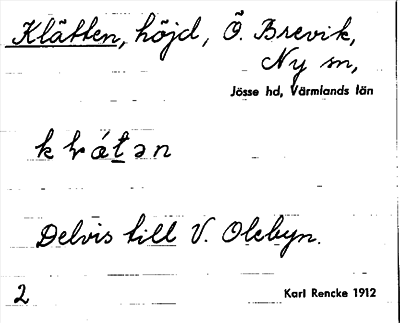 Klätten, höjd, Ö. Brevik,
Ny sn,
Jösse hd, Värmlands län
Delvis till V. Olebyn.
2
Karl Rencke 1912